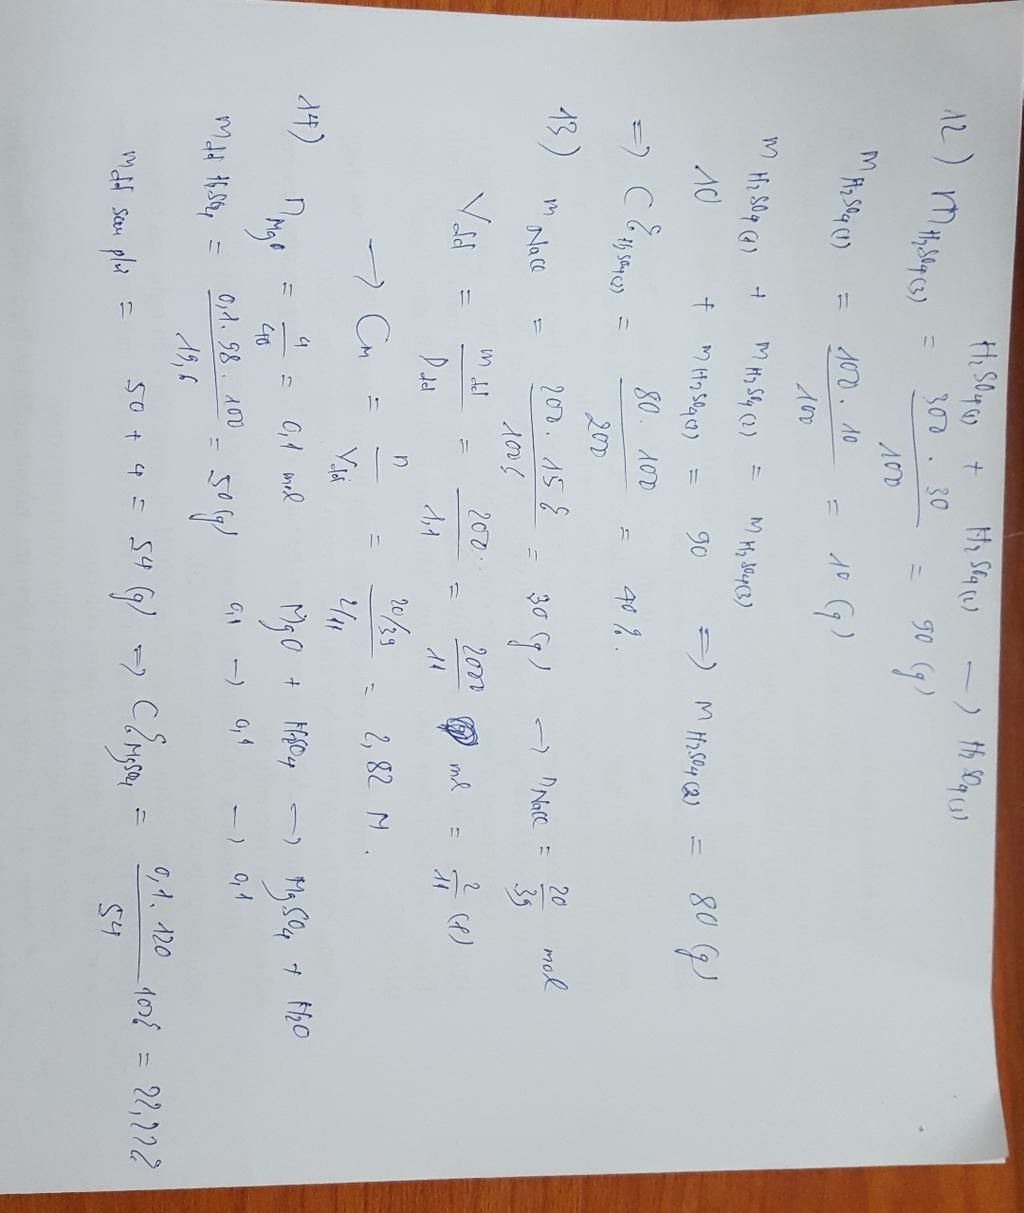 H₂SO₄(1) + H₂SO₄(2) → H₂SO₄(3)
12) m H₂SO₄(3) = 300 . 30 / 100 = 90 (g)
m H₂SO₄(1) = 100 . 10 / 100 = 10 (g)
m H₂SO₄(1) + m H₂SO₄(2) = m H₂SO₄(3)
10 + m H₂SO₄(2) = 90 => m H₂SO₄(2) = 80 (g)
=> C% H₂SO₄(2) = 80 . 100 / 200 = 40%.
13) m NaCl = 200 . 15% / 100% = 30 (g) → n NaCl = 20/39 mol
V dd = m dd / D dd = 200 / 1,1 = 2000 / 11 ml = 2/11 (l)
→ C M = n / V dd = 20/39 / 2/11 = 2,82 M.
14) n MgO = 4/40 = 0,1 mol MgO + H₂SO₄ → MgSO₄ + H₂O
m dd H₂SO₄ = 0,1 . 98 . 100 / 19,6 = 50 (g) 0,1 → 0,1 → 0,1
m dd sau pứ = 50 + 4 = 54 (g) => C% MgSO₄ = 0,1 . 120 / 54 100% = 22,22%